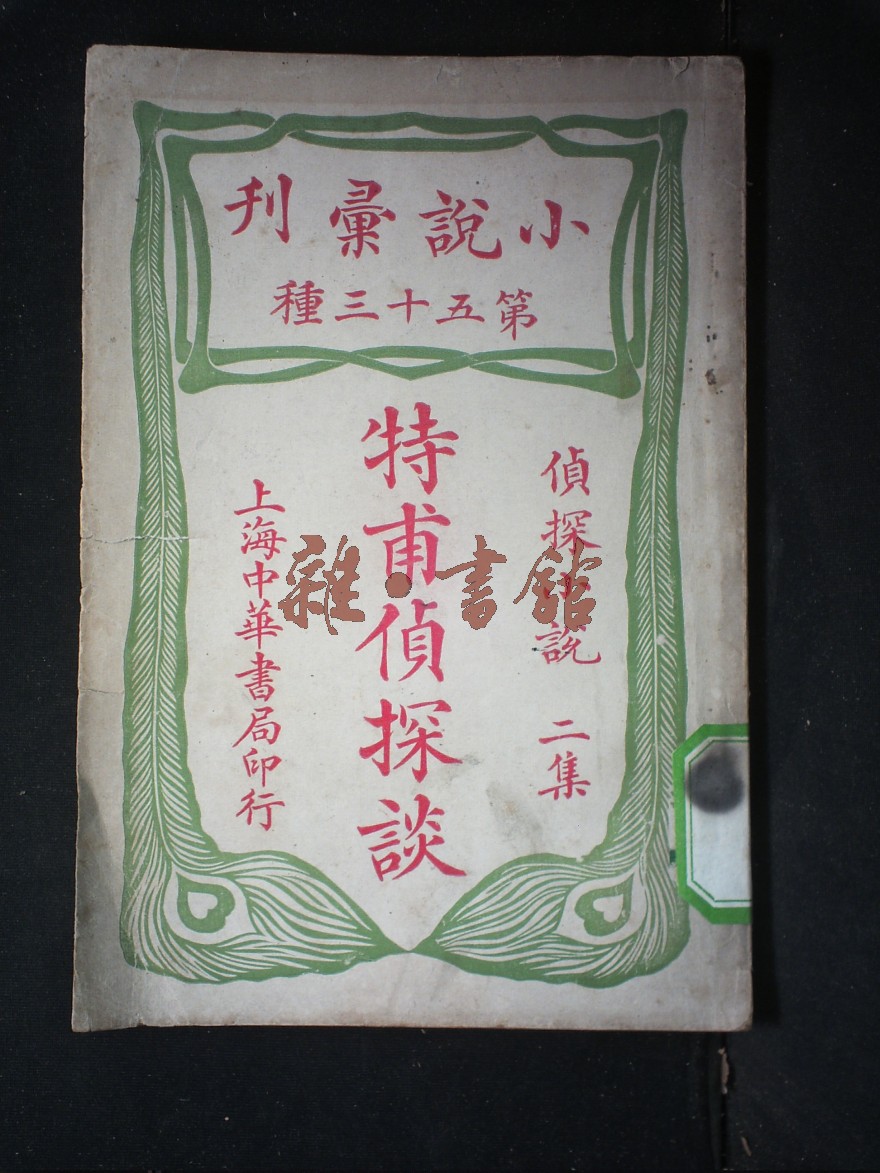 小說彙刊
第五十三種
偵探小說 二集
特甫偵探談
上海中華書局印行
雜·書館